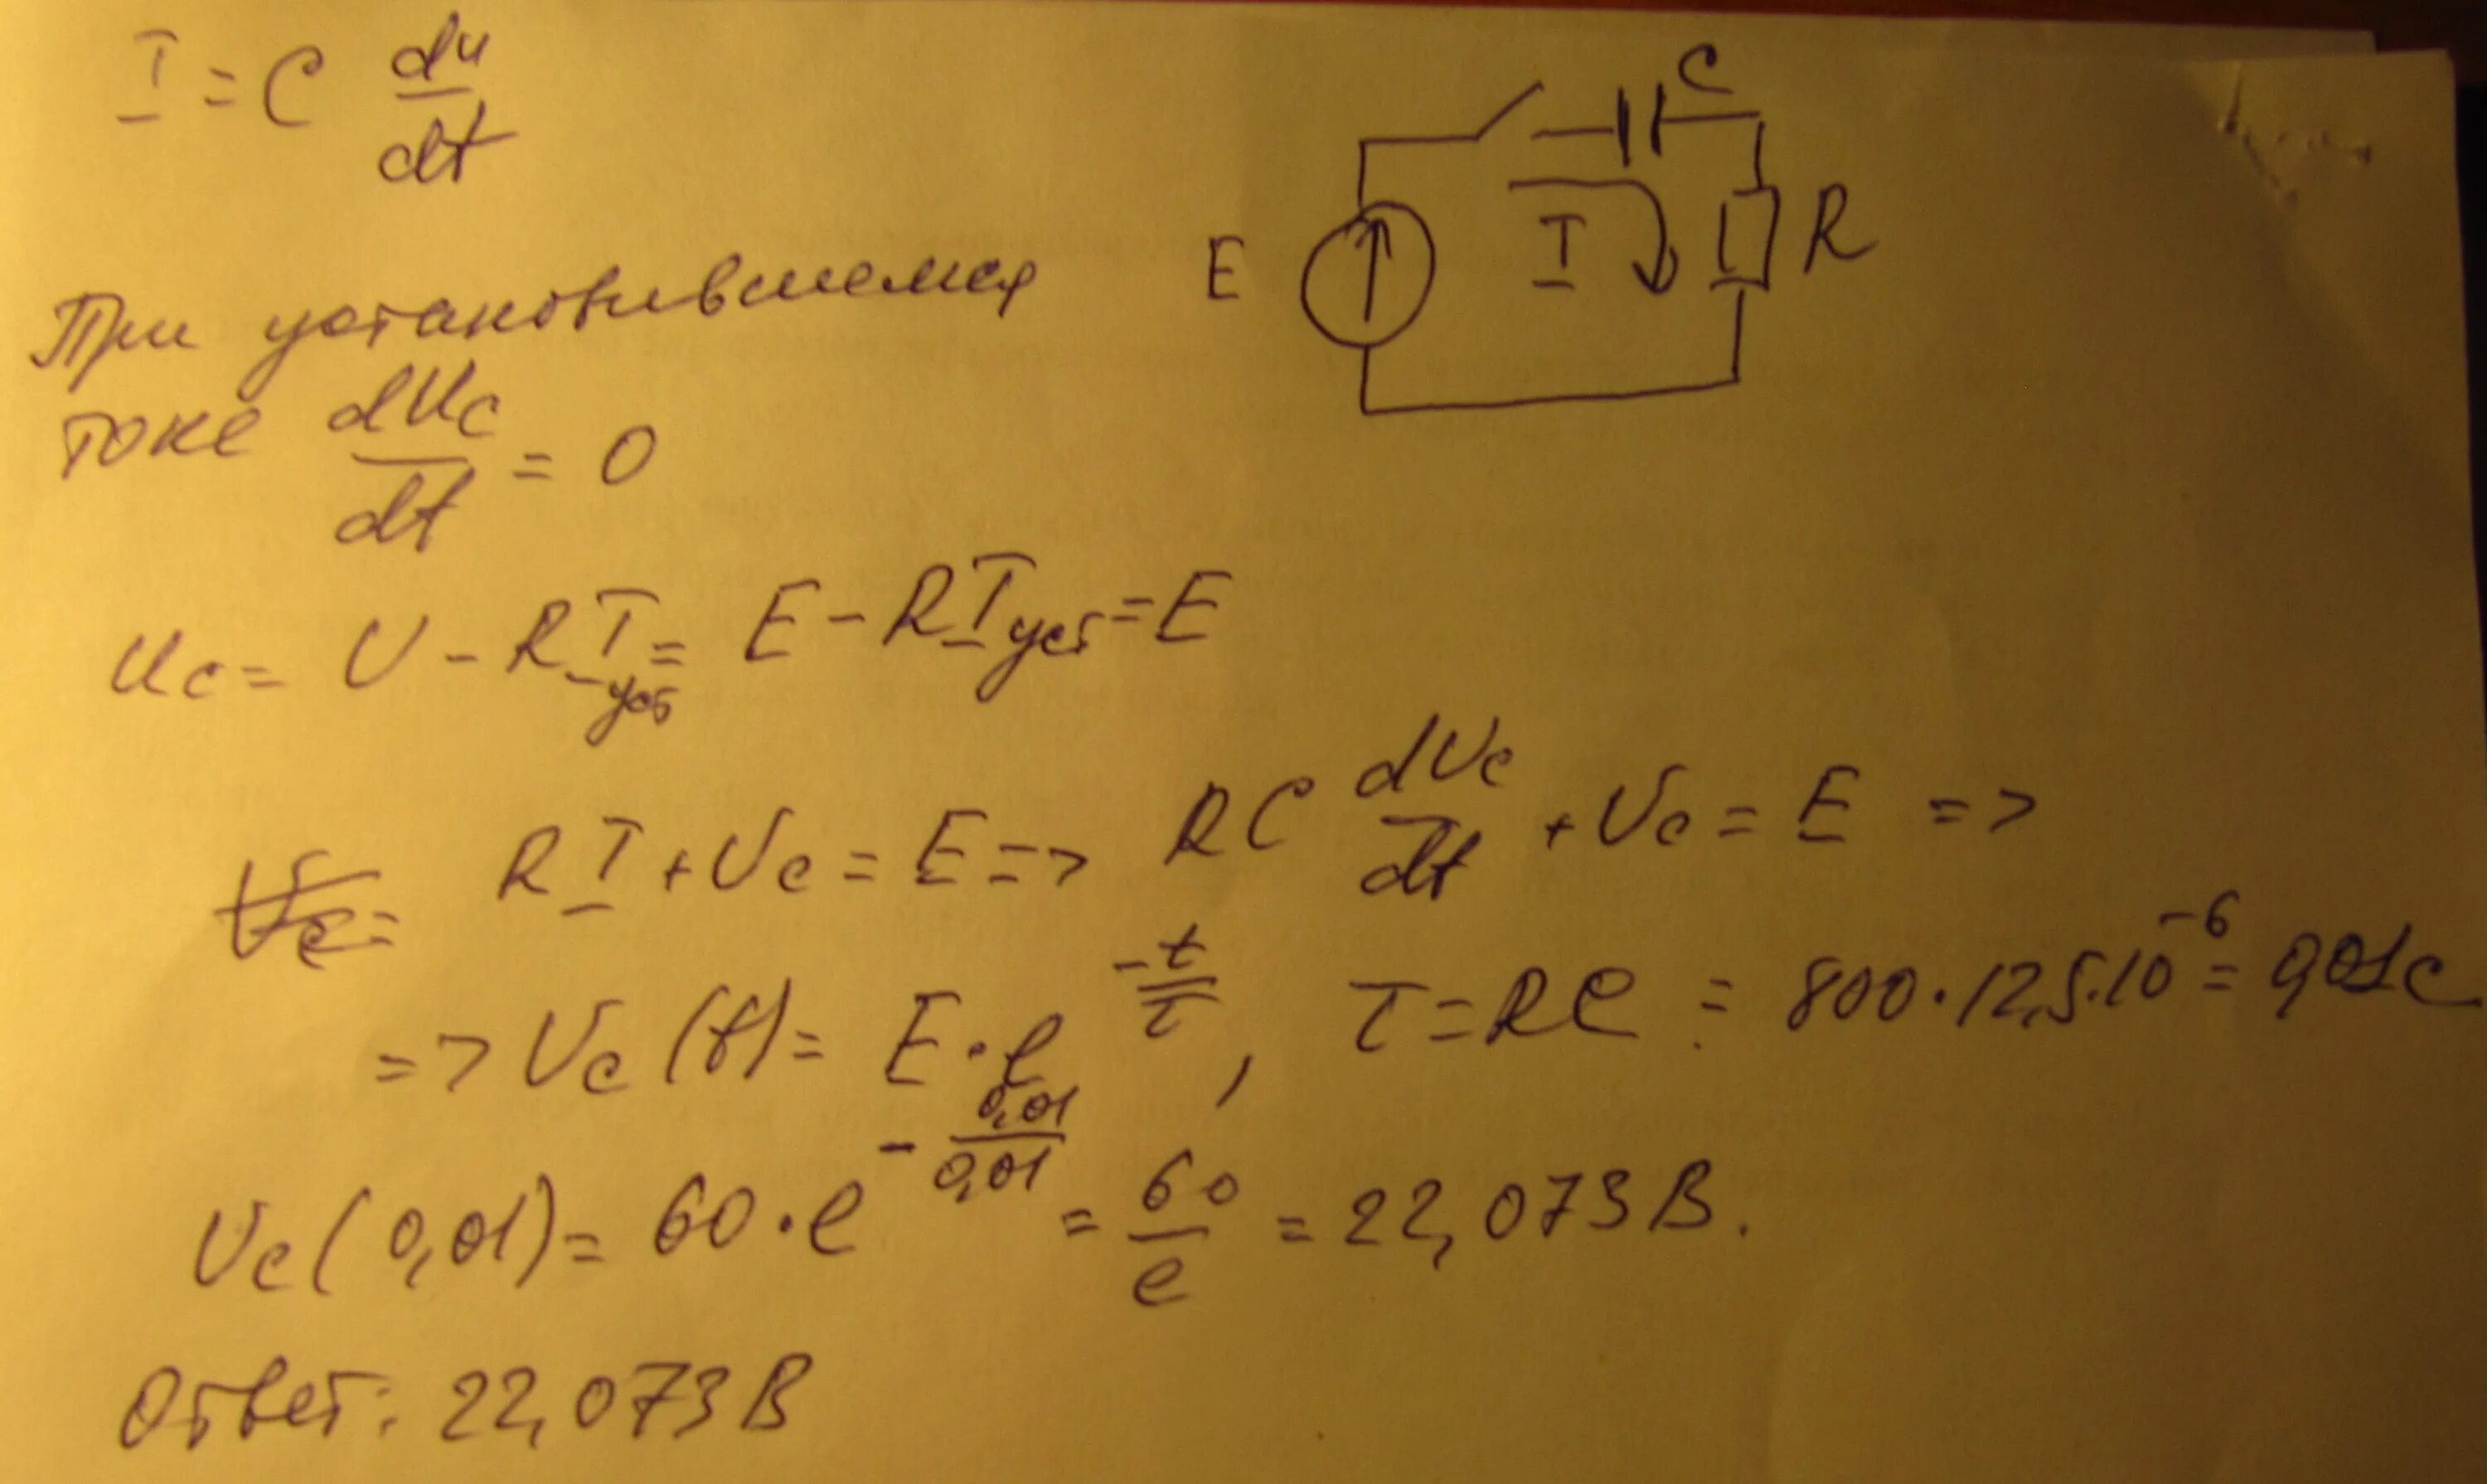 I = C du/dt
C
E
I
R
При установившемся
токе dUc/dt = 0
Uc = U - RI уст = E - RI уст = E
Uc =
RI + Uc = E => RC dUc/dt + Uc = E =>
=> Uc(t) = E · e^(-t/τ), τ = RC = 800 · 12,5 · 10^-6 = 0,01 c
Uc(0,01) = 60 · e^(-0,01/0,01) = 60/e = 22,073 В.
Ответ: 22,073 В